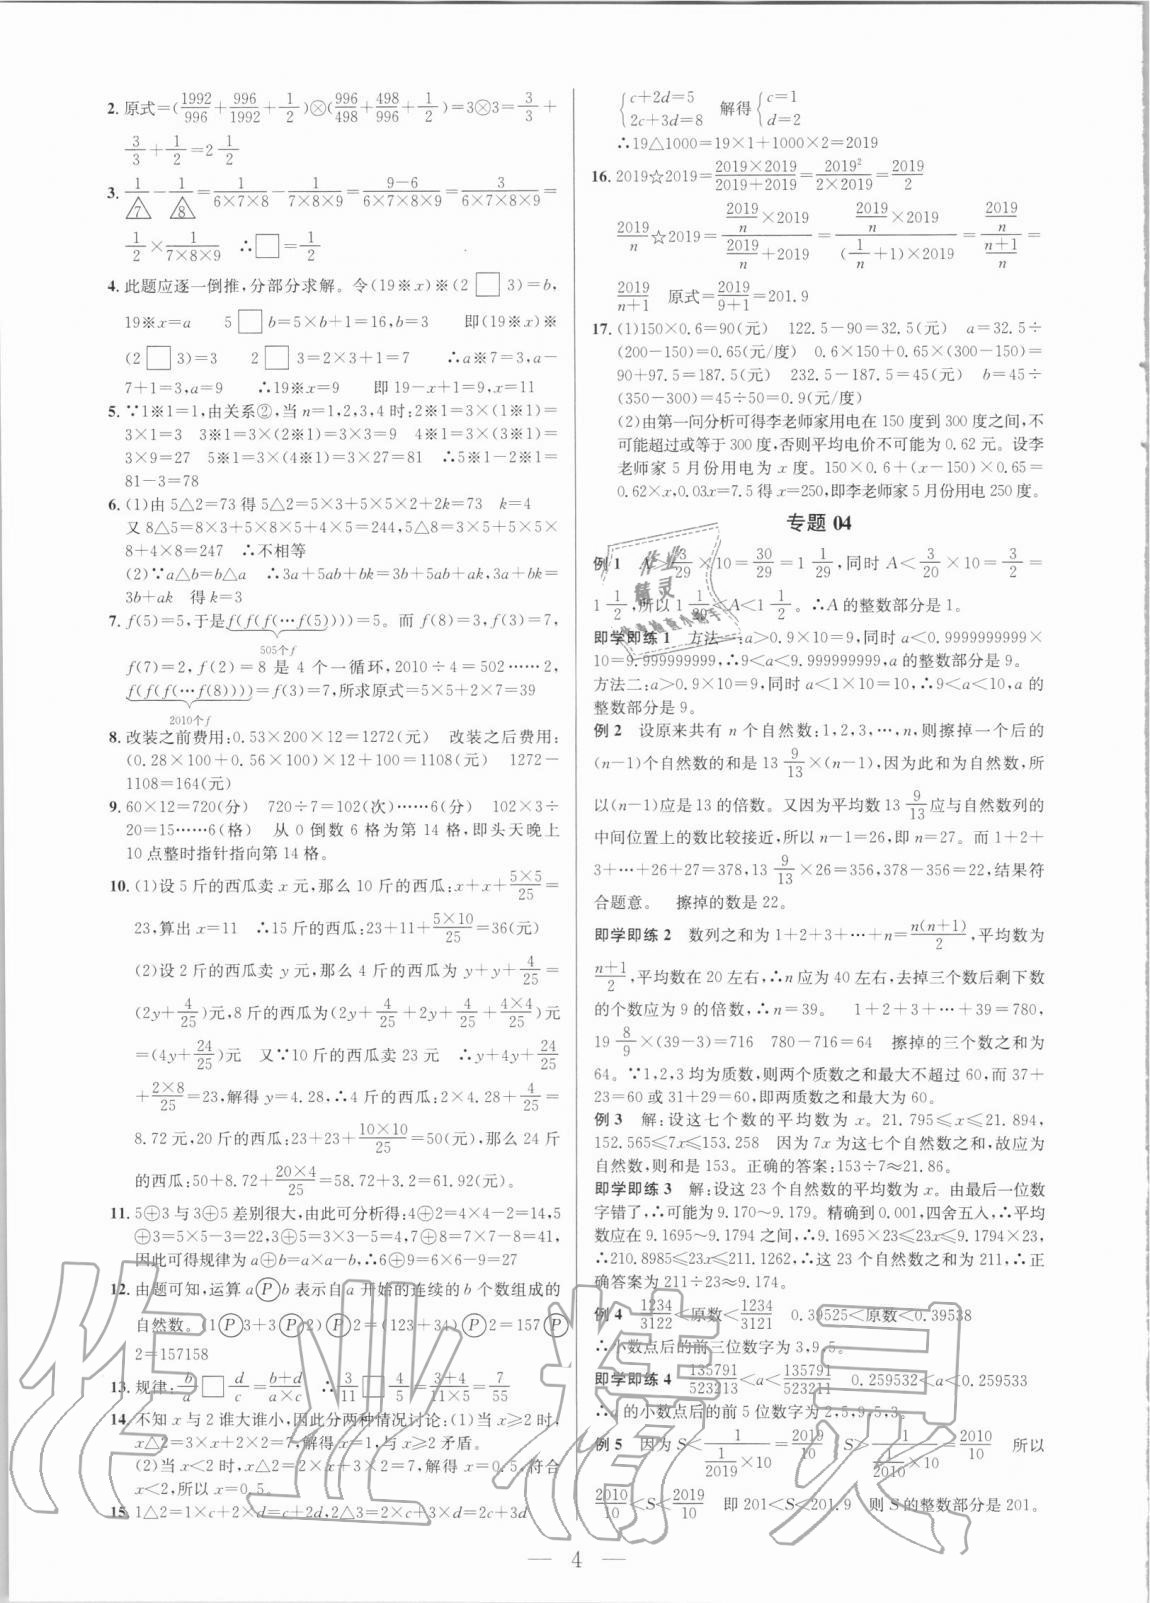 2. 原式=(1992/996+996/1992+1/2)⊗(996/498+498/996+1/2)=3⊗3=3/3+
3/3+1/2=2 1/2
3. 1/△7-1/△8=1/(6×7×8)-1/(7×8×9)=(9-6)/(6×7×8×9)=3/(6×7×8×9)=
1/2×1/(7×8×9) ∴□=1/2
4. 此题应逐一倒推,分部分求解。令(19※x)※(2□3)=b,
19※x=a 5□b=5×b+1=16,b=3 即(19※x)※
(2□3)=3 2□3=2×3+1=7 ∴a※7=3,a-
7+1=3,a=9 ∴19※x=9 即19-x+1=9,x=11
5. ∵1※1=1,由关系②,当n=1,2,3,4时:2※1=3×(1※1)=
3×1=3 3※1=3×(2※1)=3×3=9 4※1=3×(3※1)=
3×9=27 5※1=3×(4※1)=3×27=81 ∴5※1-2※1=
81-3=78
6. (1)由5△2=73得5△2=5×3+5×5×2+2k=73 k=4
又8△5=8×3+5×8×5+4×5=244,5△8=3×5+5×5×
8+4×8=247 ∴不相等
(2)∵a△b=b△a ∴3a+5ab+bk=3b+5ab+ak,3a+bk=
3b+ak 得k=3
7. f(5)=5,于是f(f(f(⋯f(5))))=5。而f(8)=3,f(3)=7,
505个f
f(7)=2,f(2)=8是4个一循环,2010÷4=502⋯⋯2,
f(f(f(⋯f(8))))=f(3)=7,所求原式=5×5+2×7=39
2010个f
8. 改装之前费用:0.53×200×12=1272(元) 改装之后费用:
(0.28×100+0.56×100)×12+100=1108(元) 1272-
1108=164(元)
9. 60×12=720(分) 720÷7=102(次)⋯⋯6(分) 102×3÷
20=15⋯⋯6(格) 从0倒数6格为第14格,即头天晚上
10点整时指针指向第14格。
10. (1)设5斤的西瓜卖x元,那么10斤的西瓜:x+x+(5×5)/25=
23,算出x=11 ∴15斤的西瓜:23+11+(5×10)/25=36(元)
(2)设2斤的西瓜卖y元,那么4斤的西瓜为y+y+4/25=
(2y+4/25)元,8斤的西瓜为(2y+4/25+2y+4/25+(4×4)/25)元
=(4y+24/25)元 又∵10斤的西瓜卖23元 ∴y+4y+24/25
+(2×8)/25=23,解得y=4.28,∴4斤的西瓜:2×4.28+4/25=
8.72元,20斤的西瓜:23+23+(10×10)/25=50(元),那么24斤
的西瓜:50+8.72+(20×4)/25=58.72+3.2=61.92(元)。
11. 5⊕3与3⊕5差别很大,由此可分析得:4⊕2=4×4-2=14,5
⊕3=5×5-3=22,3⊕5=3×3-5=4,7⊕8=7×7-8=41,
因此可得规律为a⊕b=a×a-b,∴6⊕9=6×6-9=27
12. 由题可知,运算aⓅb表示自a开始的连续的b个数组成的
自然数。(1Ⓟ3+3Ⓟ2)Ⓟ2=(123+34)Ⓟ2=157Ⓟ
2=157158
13. 规律:b/a□d/c=(b+d)/(a×c) ∴3/11□4/5=(3+4)/(11×5)=7/55
14. 不知x与2谁大谁小,因此分两种情况讨论:(1)当x≥2时,
x△2=3×x+2×2=7,解得x=1,与x≥2矛盾。
(2)当x<2时,x△2=3×2+2×x=7,解得x=0.5,符合
x<2,所以x=0.5。
15. 1△2=1×c+2×d=c+2d,2△3=2×c+3×d=2c+3d
{c+2d=5 2c+3d=8 解得{c=1 d=2
∴19△1000=19×1+1000×2=2019
16. 2019☆2019=(2019×2019)/(2019+2019)=2019²/(2×2019)=2019/2
2019/n☆2019=(2019/n×2019)/(2019/n+2019)=(2019/n×2019)/((1/n+1)×2019)=(2019/n)/((n+1)/n)=
2019/(n+1) 原式=2019/(9+1)=201.9
17. (1)150×0.6=90(元) 122.5-90=32.5(元) a=32.5÷
(200-150)=0.65(元/度) 0.6×150+0.65×(300-150)=
90+97.5=187.5(元) 232.5-187.5=45(元) b=45÷
(350-300)=45÷50=0.9(元/度)
(2)由第一问分析可得李老师家用电在150度到300度之间,不
可能超过或等于300度,否则平均电价不可能为0.62元。设李
老师家5月份用电为x度。150×0.6+(x-150)×0.65=
0.62×x,0.03x=7.5得x=250,即李老师家5月份用电250度。
专题 04
例1 A>3/29×10=30/29=1 1/29,同时A<3/20×10=3/2=
1 1/2,所以1 1/29<A<1 1/2。∴A的整数部分是1。
即学即练1 方法一:a>0.9×10=9,同时a<0.9999999999
×10=9.999999999,∴9<a<9.999999999,a的整数部分是9。
方法二:a>0.9×10=9,同时a<1×10=10,∴9<a<10,a的
整数部分是9。
例2 设原来共有n个自然数:1,2,3,⋯,n,则擦掉一个后的
(n-1)个自然数的和是13 9/13×(n-1),因为此和为自然数,所
以(n-1)应是13的倍数。又因为平均数13 9/13应与自然数列的
中间位置上的数比较接近,所以n-1=26,即n=27。而1+2+
3+⋯+26+27=378,13 9/13×26=356,378-356=22,结果符
合题意。 擦掉的数是22。
即学即练2 数列之和为1+2+3+⋯+n=n(n+1)/2,平均数为
(n+1)/2,平均数在20左右,∴n应为40左右,去掉三个数后剩下数
的个数应为9的倍数,∴n=39。 1+2+3+⋯+39=780,
19 8/9×(39-3)=716 780-716=64 擦掉的三个数之和为
64。∵1,2,3均为质数,则两个质数之和最大不超过60,而37+
23=60或31+29=60,即两质数之和最大为60。
例3 解:设这七个数的平均数为x。21.795≤x≤21.894,
152.565≤7x≤153.258 因为7x为这七个自然数之和,故应为
自然数,则和是153。正确的答案:153÷7≈21.86。
即学即练3 解:设这23个自然数的平均数为x。由最后一位数
字错了,∴可能为9.170~9.179。精确到0.001,四舍五入,∴平均
数应在9.1695~9.1794之间,∴9.1695×23≤23x≤9.1794×23,
∴210.8985≤23x≤211.1262,∴这23个自然数和为211,∴正
确答案为211÷23≈9.174。
例4 1234/3122<原数<1234/3121 0.39525<原数<0.39538
∴小数点后的前三位数字为3,9,5。
即学即练4 135791/523213<a<135791/523211 0.259532<a<0.259533
∴的小数点后的前5位数字为2,5,9,5,3。
例5 因为S<1/(1/2019×10)=2019/10 S>1/(1/2010×10)=2010/10 所以
2010/10<S<2019/10 即201<S<201.9 则S的整数部分是201。
— 4 —
作业精灵
作业
精灵